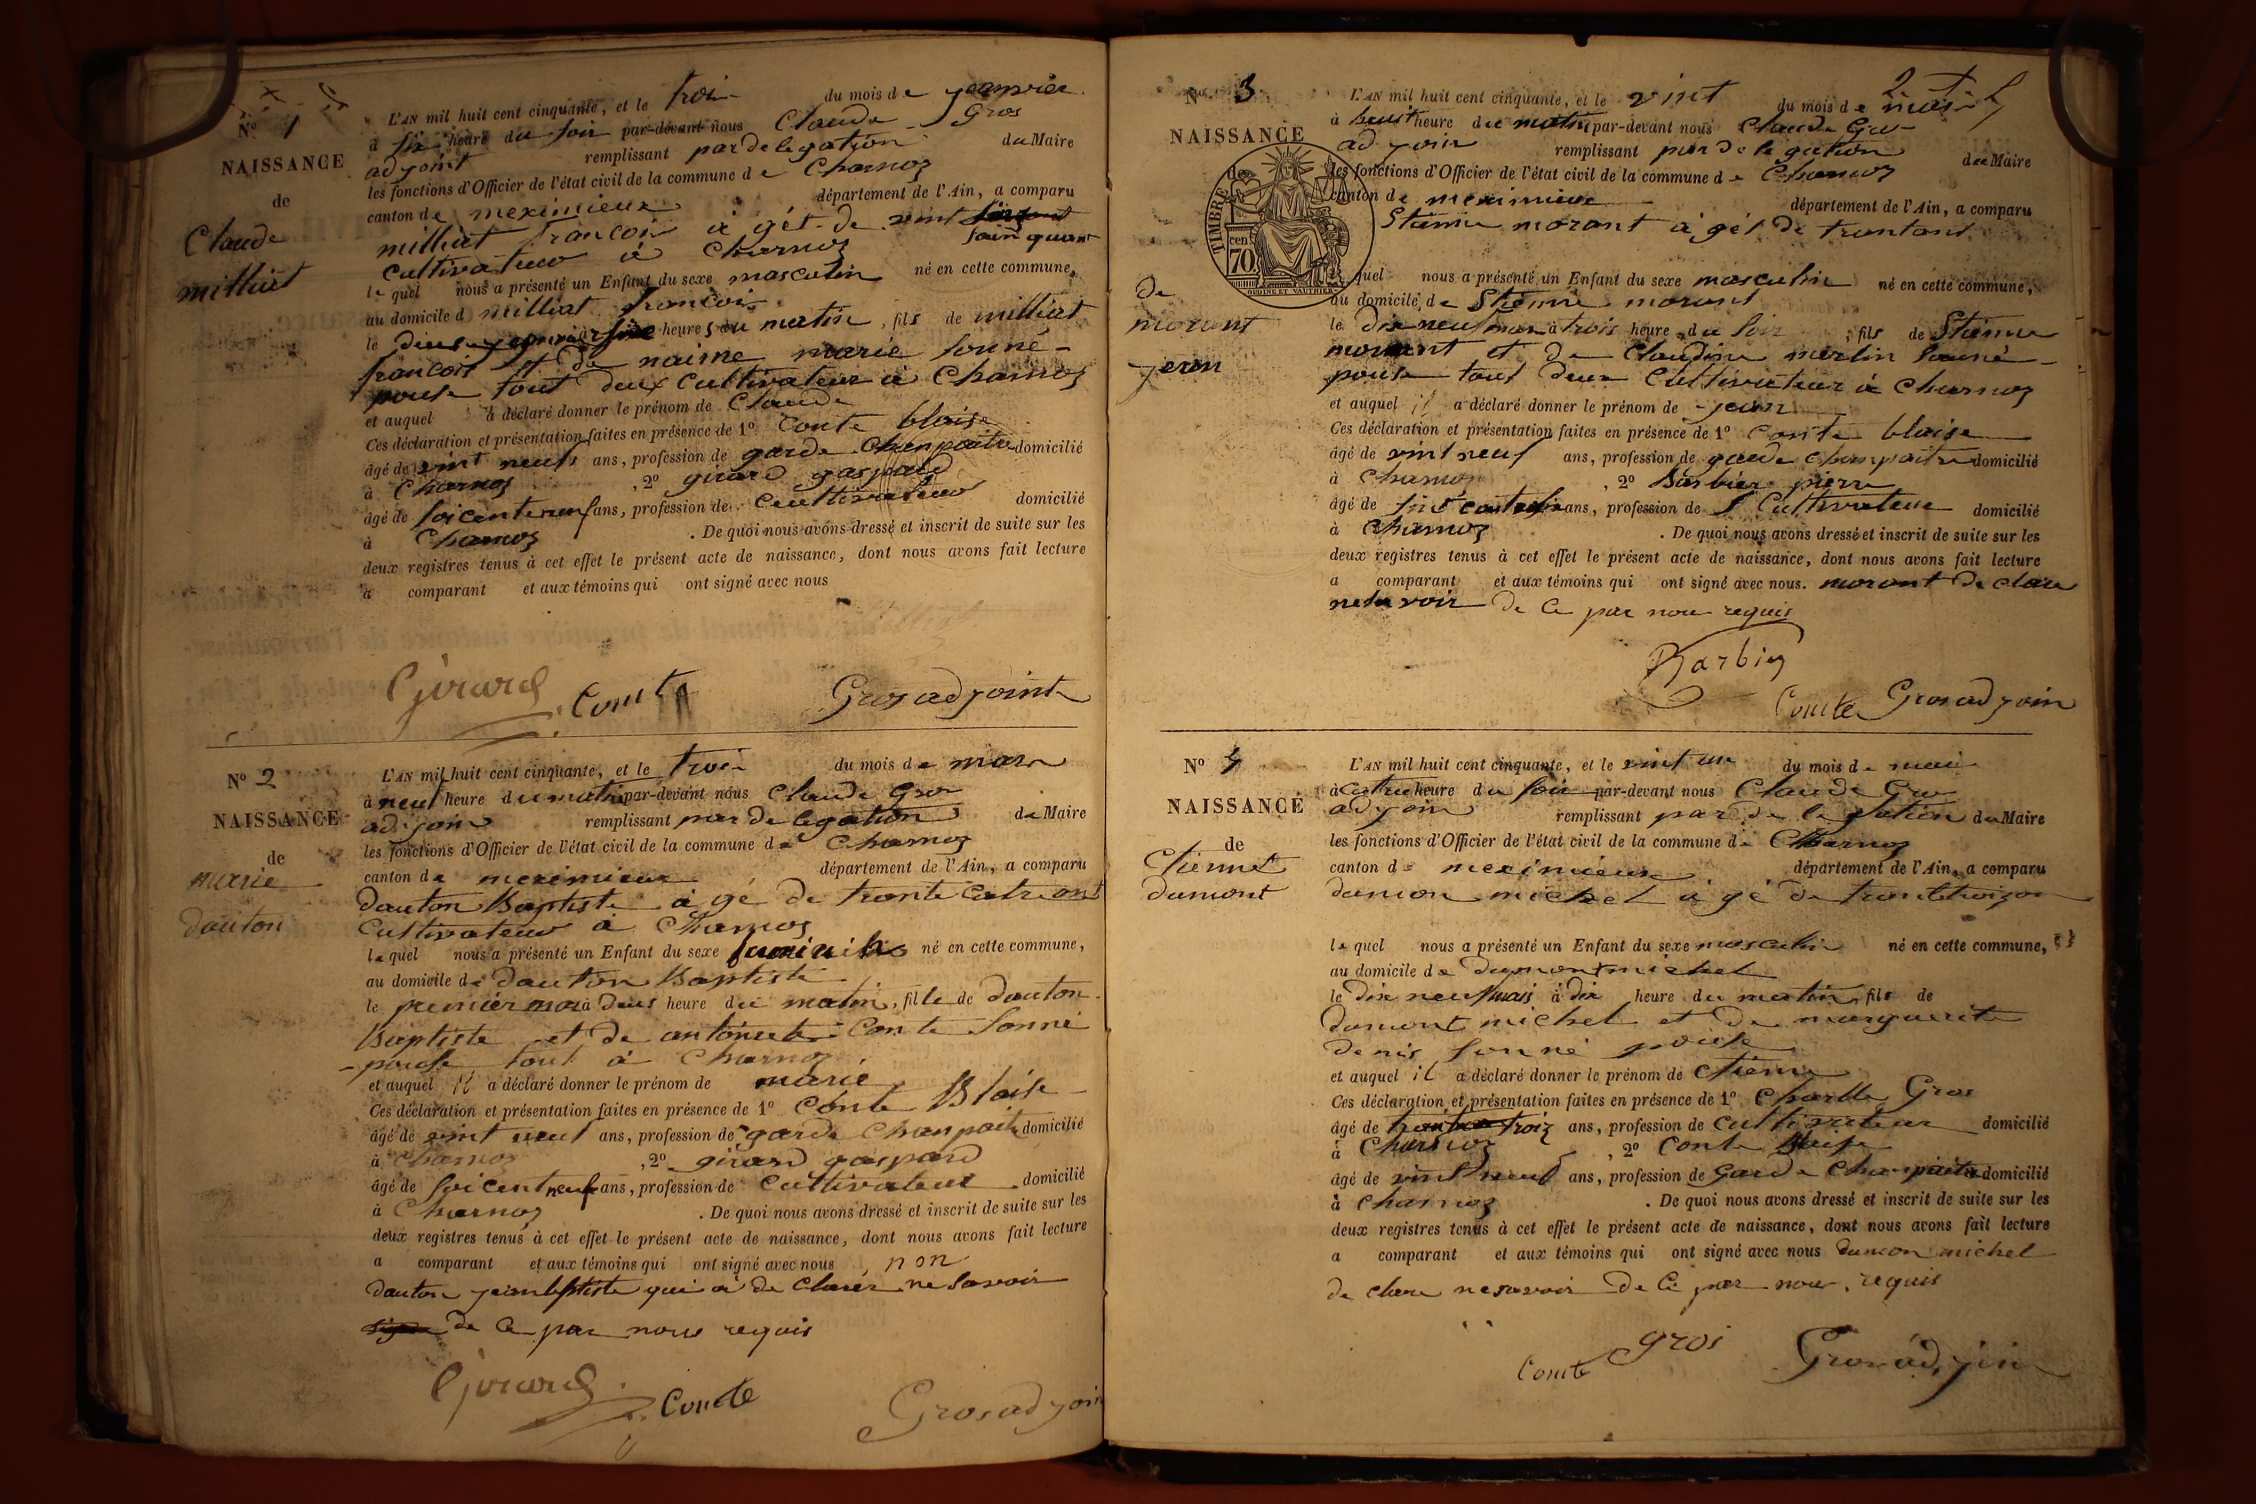 N° 1
NAISSANCE
de
Claude
milliat
L'AN mil huit cent cinquante, et le troi du mois de janvier
à six heure du soir par-devant nous Claude Gros
adjoint remplissant par delegation du Maire
les fonctions d'Officier de l'état civil de la commune de Charnoz
canton de meximieux département de l'Ain, a comparu
milliat francois à gét de vint
sainquant
Cultivateur à Charnoz
lequel nous a présenté un Enfant du sexe masculin né en cette commune,
au domicile d milliat francois
le deus janvier heures du matin, fils de milliat
francois et de naime marie sonné-
pouse tout deux Cultivateur à Charnoz
et auquel a déclaré donner le prénom de Claude
Ces déclaration et présentation faites en présence de 1° Conte blaise
âgé de vint neufs ans, profession de garde Chenpaitre domicilié
à Charnoz, 2° girard gaspard
âgé de soicenteneuf ans, profession de Cultivateur domicilié
à Charnoz. De quoi nous avons dressé et inscrit de suite sur les
deux registres tenus à cet effet le présent acte de naissance, dont nous avons fait lecture
a comparant et aux témoins qui ont signé avec nous
Girard Comte Gros adjoint
N° 2
NAISSANCE
de
marie
dauton
L'AN mil huit cent cinquante, et le troi du mois de mars
à neuf heure du matin par-devant nous Claude Gros
adjoin remplissant par delegation du Maire
les fonctions d'Officier de l'état civil de la commune de Charnoz
canton de meximieux département de l'Ain, a comparu
dauton Baptiste à gé de trente catre ant
Cultivateur à Charnoz
lequel nous a présenté un Enfant du sexe né en cette commune,
au domicile de dauton Baptiste
le premier mar à deus heure du matin, fille de dauton
Baptiste et de antoinete Conte sonné
-pouse tout à Charnoz
et auquel il a déclaré donner le prénom de marie
Ces déclaration et présentation faites en présence de 1° Conte Blaise
âgé de vint neuf ans, profession de garde Chanpaitre domicilié
à Charnoz, 2° girard gaspard
âgé de soicent neuf ans, profession de Cultivateur domicilié
à Charnoz. De quoi nous avons dressé et inscrit de suite sur les
deux registres tenus à cet effet le présent acte de naissance, dont nous avons fait lecture
a comparant et aux témoins qui ont signé avec nous, non
dauton jeanbptiste qui à de clarér ne savoir
de ce par nous requis
Girard Comte Gros adjoin
2
N° 3
NAISSANCE
TIMBRE
cen
70
de
morant
jean
L'AN mil huit cent cinquante, et le vint du mois de
à heure du matin par-devant nous Claude Gros
adjoin remplissant par de legation du Maire
les fonctions d'Officier de l'état civil de la commune de Charnoz
canton de meximieux département de l'Ain, a comparu
Stienne morant à gét de trantant
quel nous a présenté un Enfant du sexe masculin né en cette commune,
au domicile de Stienne morant
le dix neuf mar à trois heure du soir, fils de Stienne
morant et de Claudine merlin sonné-
pouse tout deux Cultivateur à Charnoz
et auquel il a déclaré donner le prénom de jean
Ces déclaration et présentation faites en présence de 1° Conte blaise
âgé de vint neuf ans, profession de garde Chanpaitre domicilié
à Charnoz, 2° Barbier pierre
âgé de ans, profession de Cultivateur domicilié
à Charnoz. De quoi nous avons dressé et inscrit de suite sur les
deux registres tenus à cet effet le présent acte de naissance, dont nous avons fait lecture
a comparant et aux témoins qui ont signé avec nous. morant de clare
nesavoir de Ce par nous requis
Comte Gros adjoin
N° 4
NAISSANCE
de
Etienne
dumont
L'AN mil huit cent cinquante, et le vint un du mois de mai
à Catre heure du soir par-devant nous Claude Gros
adjoin remplissant par de legation du Maire
les fonctions d'Officier de l'état civil de la commune de Charnoz
canton de meximieux département de l'Ain, a comparu
dumon michel à gé de trantetroizan
lequel nous a présenté un Enfant du sexe masculin né en cette commune,
au domicile de dumont michel
le dix neuf mais à dix heure du matin, fils de
dumont michel et de marguerite
denis sonné pouse
et auquel il a déclaré donner le prénom de Etienne
Ces déclaration et présentation faites en présence de 1° Charlle Gros
âgé de troiz ans, profession de Cultivateur domicilié
à Charnoz, 2° Conte Blaise
âgé de vint neuf ans, profession de garde Chanpaitre domicilié
à Charnoz. De quoi nous avons dressé et inscrit de suite sur les
deux registres tenus à cet effet le présent acte de naissance, dont nous avons fait lecture
a comparant et aux témoins qui ont signé avec nous dumon michel
de clare nesavoir de Ce par nous requis
Comte gros Gros adjoin